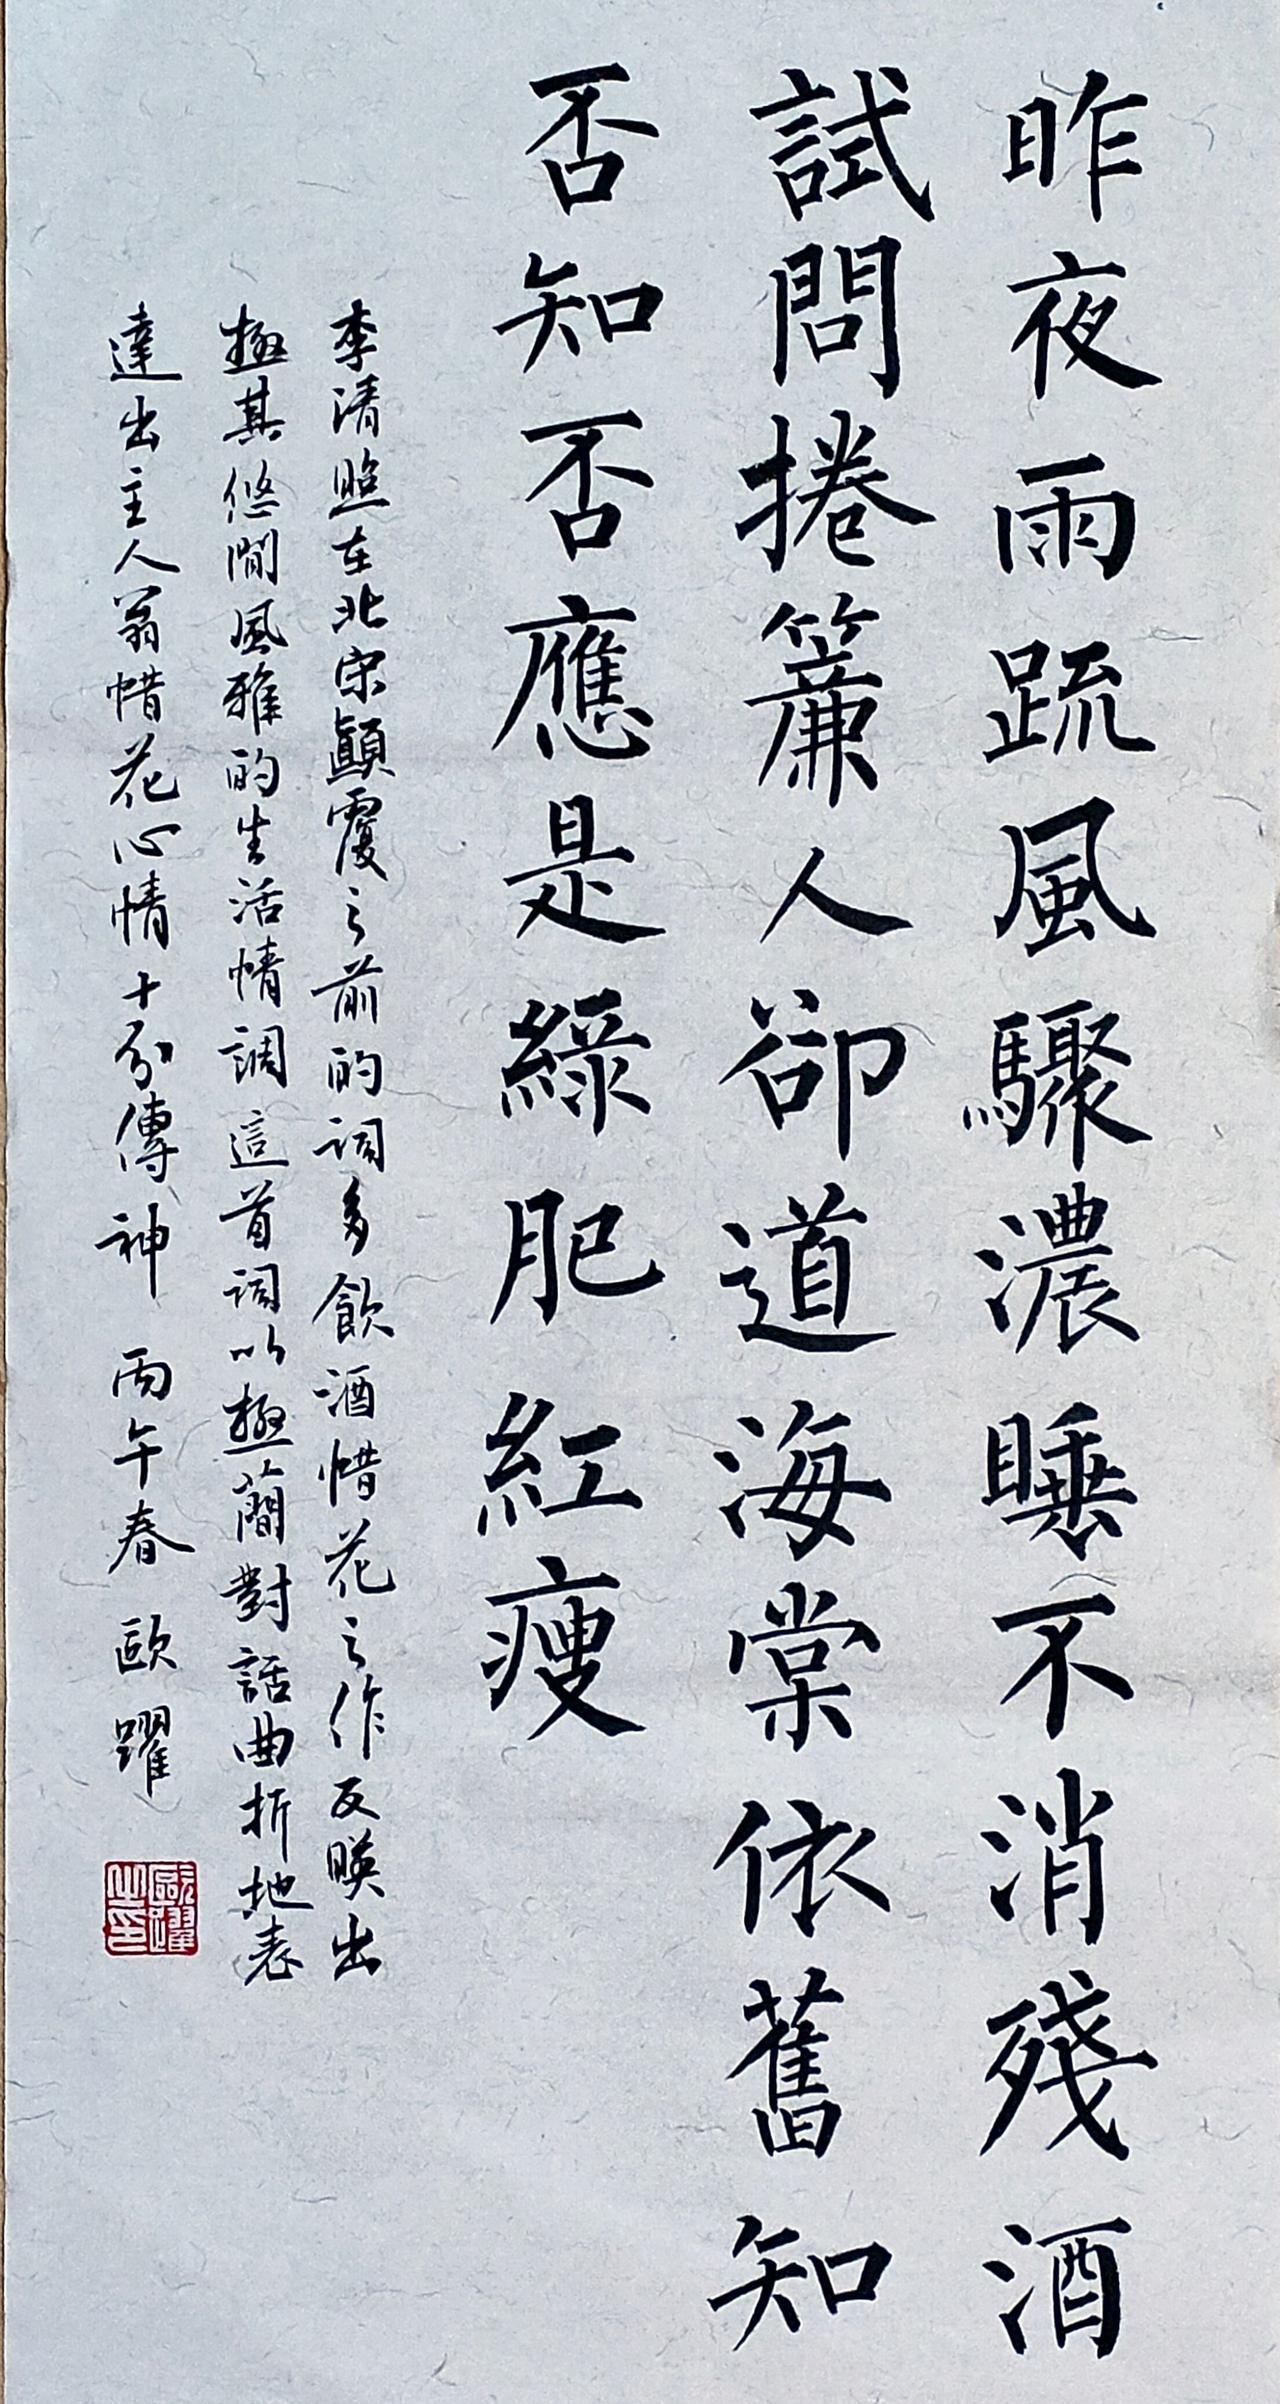 昨夜雨疏風驟濃睡不消殘酒
試問捲簾人卻道海棠依舊知
否知否應是綠肥紅瘦
李清照在北宋顛覆之前的詞多飲酒惜花之作反映出
極其悠閒風雅的生活情調這首詞以極簡對話曲折地表
達出主人翁惜花心情十分傳神 丙午春 歐躍
歐躍之印